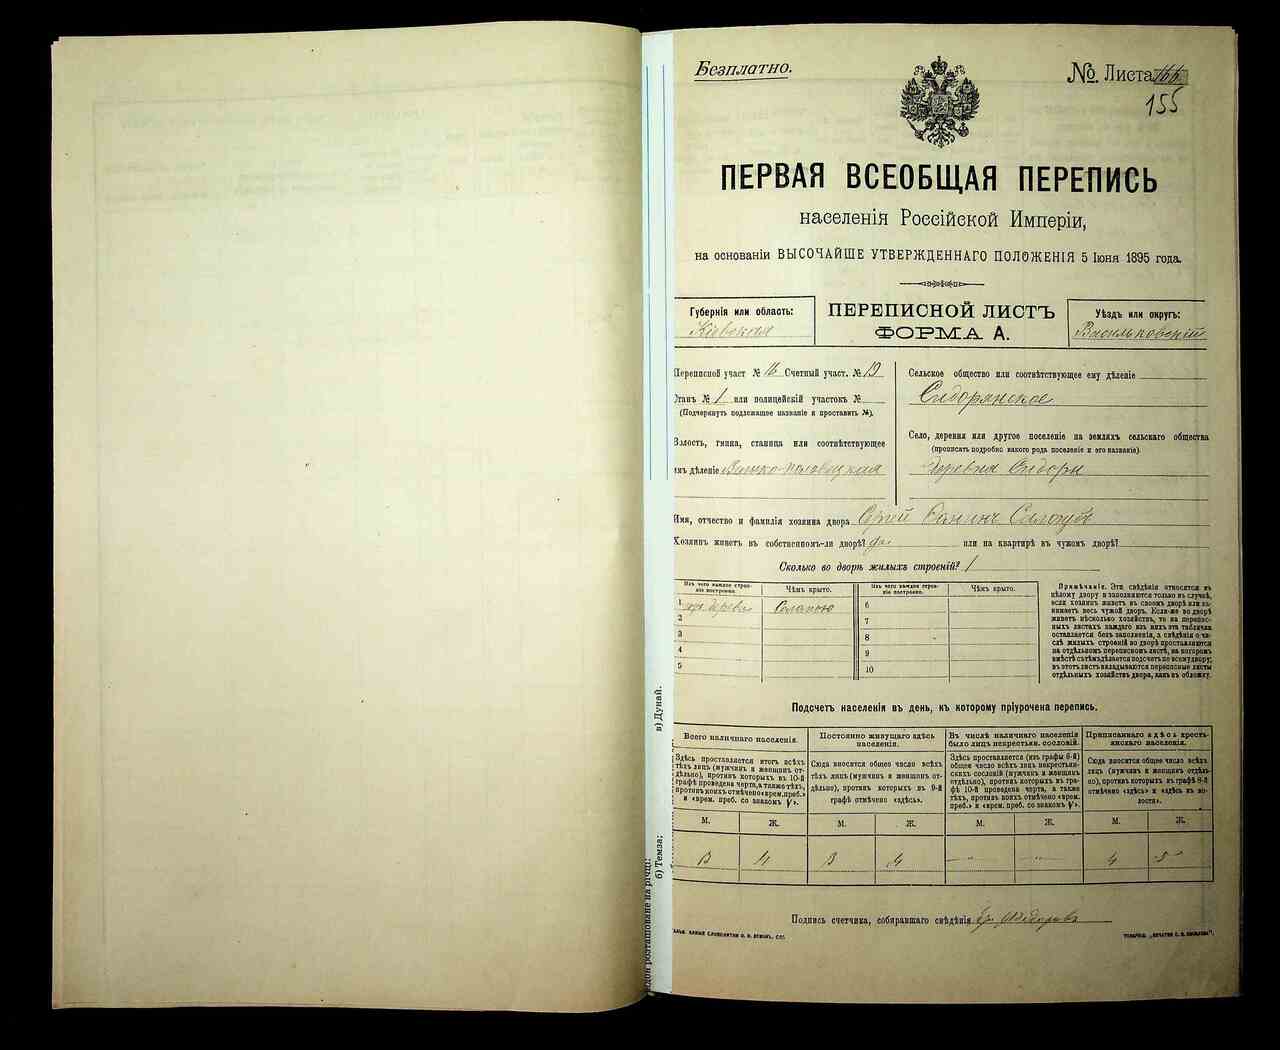 Безплатно.
№. Листа 166
155
ПЕРВАЯ ВСЕОБЩАЯ ПЕРЕПИСЬ
населенія Россійской Имперіи,
на основаніи ВЫСОЧАЙШЕ УТВЕРЖДЕННАГО ПОЛОЖЕНІЯ 5 Іюня 1895 года.
Губернія или область:
Кіевская
ПЕРЕПИСНОЙ ЛИСТЪ
ФОРМА А.
Уѣздъ или округъ:
Васильковскій
Переписной участ № 16 Счетный участ. № 19
Станъ № 1 или полицейскій участокъ №
(Подчеркнуть подлежащее названіе и проставить №).
Волость, гмина, станица или соотвѣтствующее
имъ дѣленіе
Сельское общество или соотвѣтствующее ему дѣленіе
Сидорянское
Село, деревня или другое поселеніе на земляхъ сельскаго общества
(прописать подробно какого рода поселеніе и его названіе).
деревня Сидоры
Имя, отчество и фамилія хозяина двора Сергій
Хозяинъ живетъ въ собственномъ-ли дворѣ? да или на квартирѣ въ чужомъ дворѣ?
Сколько во дворѣ жилыхъ строеній? 1
Изъ чего каждое строеніе построено.
Чѣмъ крыто.
Изъ чего каждое строеніе построено.
Чѣмъ крыто.
1 дерева Соломою 6
2 7
3 8
4 9
5 10
Примѣчаніе. Эти свѣдѣнія относятся къ
цѣлому двору и заполняются только въ случаѣ,
если хозяинъ живетъ въ своемъ дворѣ или занимаетъ весь чужой дворъ. Если-же во дворѣ
живетъ нѣсколько хозяйствъ, то на переписныхъ листахъ каждаго изъ нихъ эта табличка
оставляется безъ заполненія, а свѣдѣнія о числѣ жилыхъ строеній во дворѣ проставляются
на отдѣльномъ переписномъ листѣ, на которомъ
вмѣстѣ съ тѣмъ дѣлается подсчетъ по всему двору;
въ этотъ листъ вкладываются переписные листы
отдѣльныхъ хозяйствъ двора, какъ въ обложку.
Подсчетъ населенія въ день, къ которому пріурочена перепись.
Всего наличнаго населенія.
Постоянно живущаго здѣсь населенія.
Въ числѣ наличнаго населенія было лицъ некрестьян. сословій.
Приписаннаго здѣсь крестьянскаго населенія.
Здѣсь проставляется итогъ всѣхъ
тѣхъ лицъ (мужчинъ и женщинъ отдѣльно), противъ которыхъ въ 10-й
графѣ проведена черта, а также тѣхъ,
противъ коихъ отмѣчено «врем. преб.»
и «врем. преб. со знакомъ V».
Сюда вносится общее число всѣхъ
тѣхъ лицъ (мужчинъ и женщинъ отдѣльно), противъ которыхъ въ 9-й
графѣ отмѣчено «здѣсь».
Здѣсь проставляется (изъ графы 6-й)
общее число всѣхъ лицъ некрестьянскихъ сословій (мужчинъ и женщинъ отдѣльно), противъ которыхъ въ графѣ 10-й проведена черта, а также
тѣхъ, противъ коихъ отмѣчено «врем.
преб.» и «врем. преб. со знакомъ V».
Сюда вносится общее число всѣхъ
лицъ (мужчинъ и женщинъ отдѣльно), противъ которыхъ въ графѣ 8-й
отмѣчено «здѣсь» и «здѣсь въ волости».
М. Ж. М. Ж. М. Ж. М. Ж.
3 4 3 4 — — 4 5
Подпись счетчика, собиравшаго свѣдѣнія
в) Дунай.
б) Темза;
розташоване на річці: